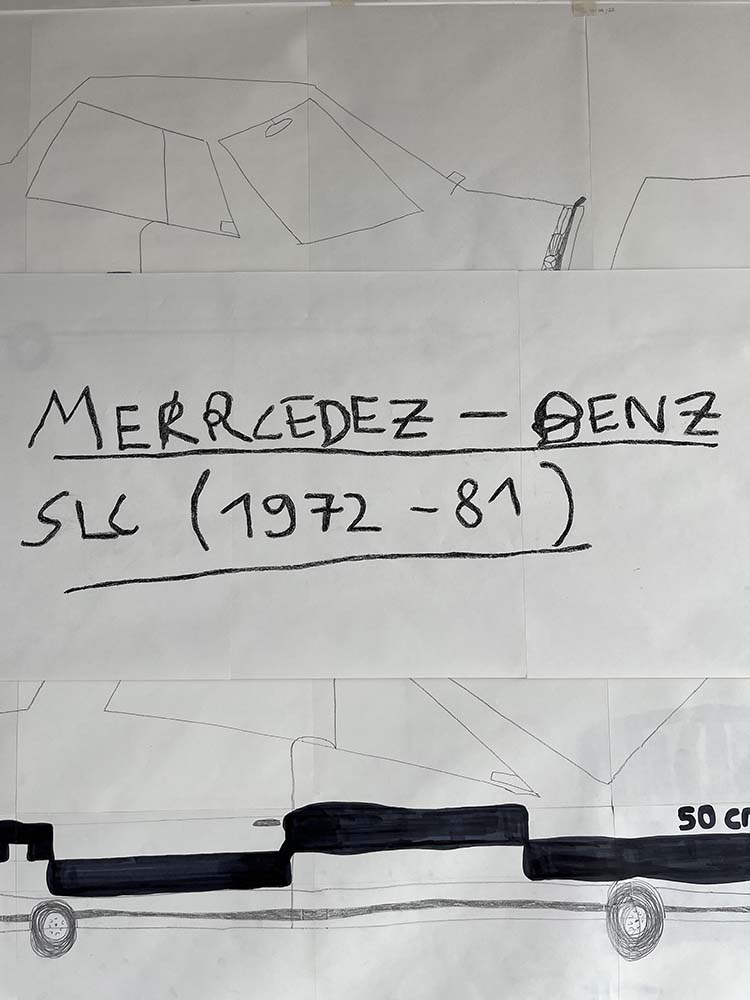 MERRCEDEZ - BENZ
SLC (1972 - 81)
50 cm